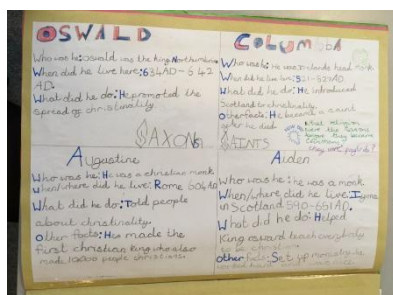 OSWALD
Who was he: Oswald was the king Northumbria
When did he live here: 634AD - 642
AD.
What did he do: He promoted the
spread of christinality.
COLUMBA
Who was he: He was Irelands head monk.
When did he live: 521-597AD.
What did he do: He introduced
Scotland to christinality.
other facts: He became a saint
after he died.
What religion
were the Saxons
before they became
Christians?
they were pagans?
SAXON
SAINTS
Augustine
Who was he: He was a christian monk
When/where did he live: Rome 604AD
What did he do: Told people
about christinality.
other facts: He made the
first christian king who also
made 10000 people christians.
Aiden
Who was he: he was a monk.
When/where did he live:
in Scotland 590-651AD.
What did he do: Helped
King oswald teach everybody
to be christian
other facts: Set up monastry he